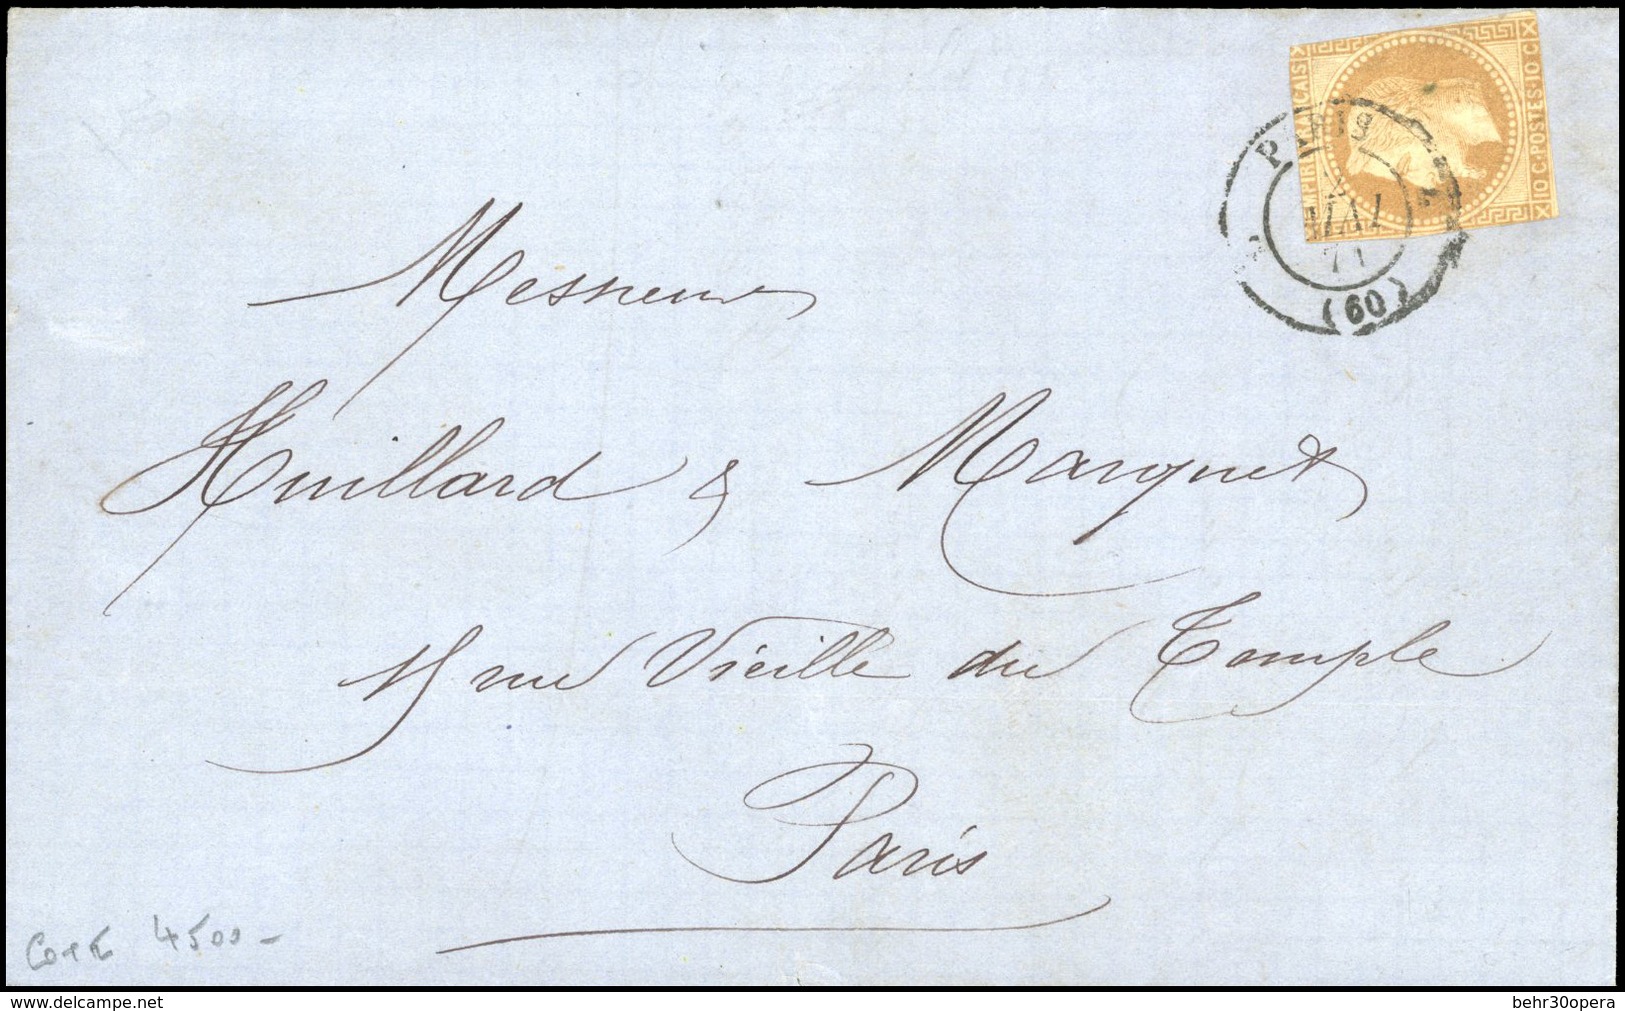 EMPIRE FRANÇAIS
10 C·POSTES·10 C
PARIS
2
MAI
71
(60)
Messieurs
Huillard & Marquet
15 rue Vieille du Temple
Paris
Cote 4500-
www.delcampe.net
behr30opera